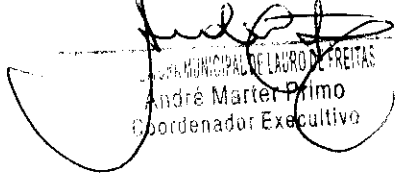 MUNICIPAL DE LAURO DE FREITAS
André Marter Primo
Coordenador Executivo